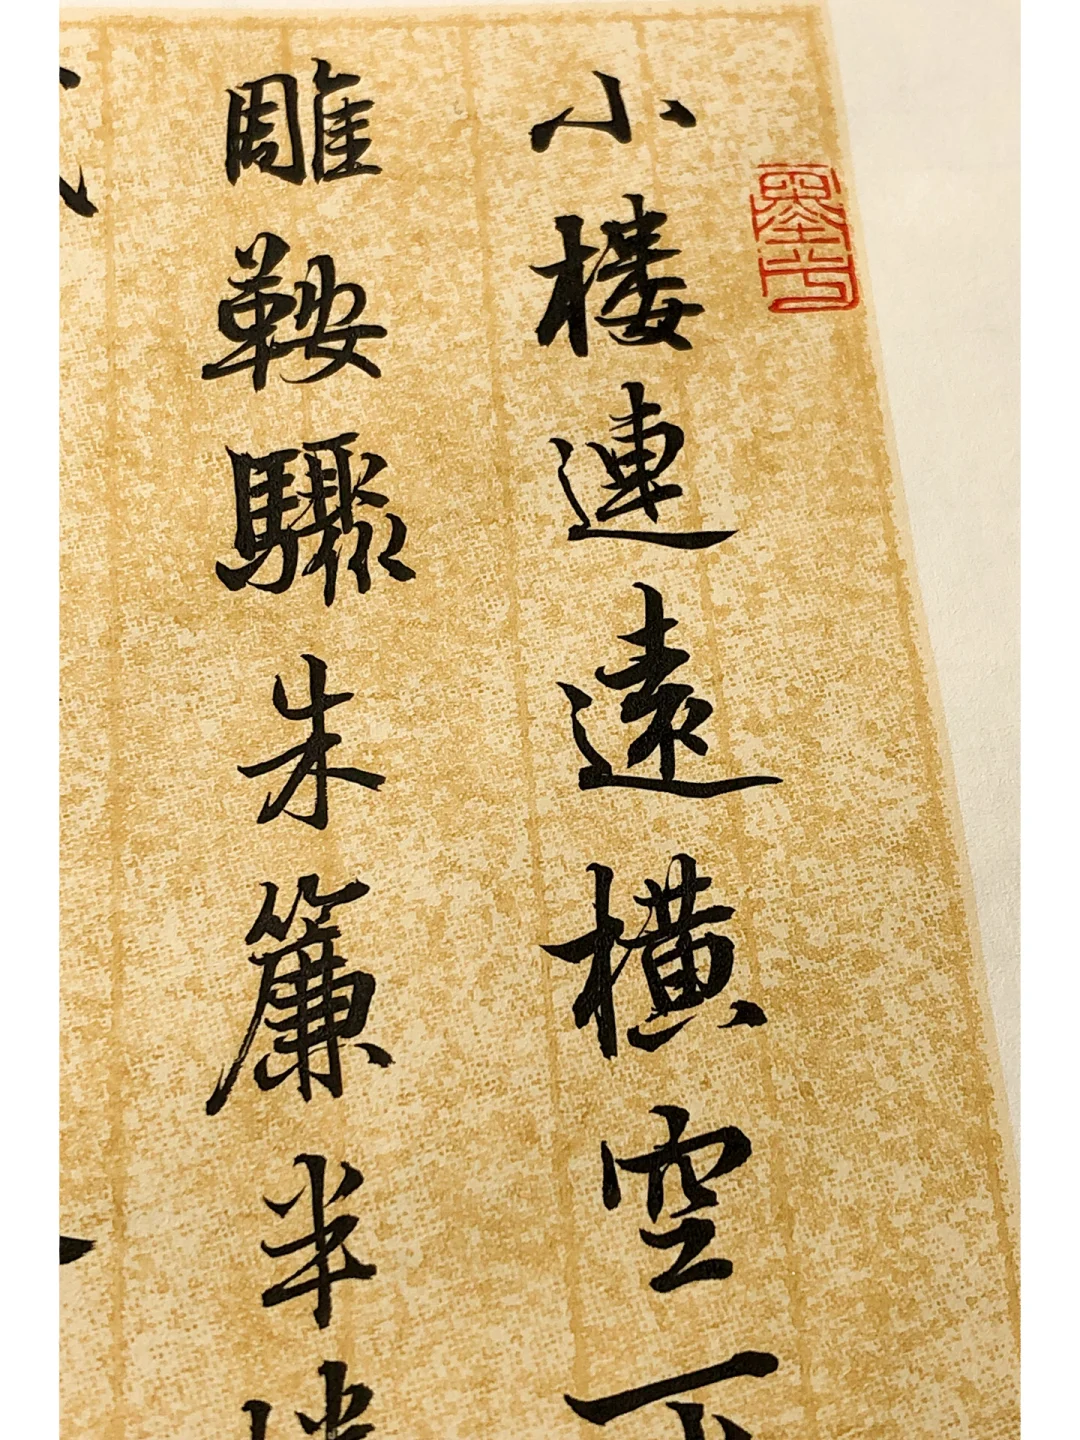 小樓連遠横空下
雕鞍驟朱簾半捲